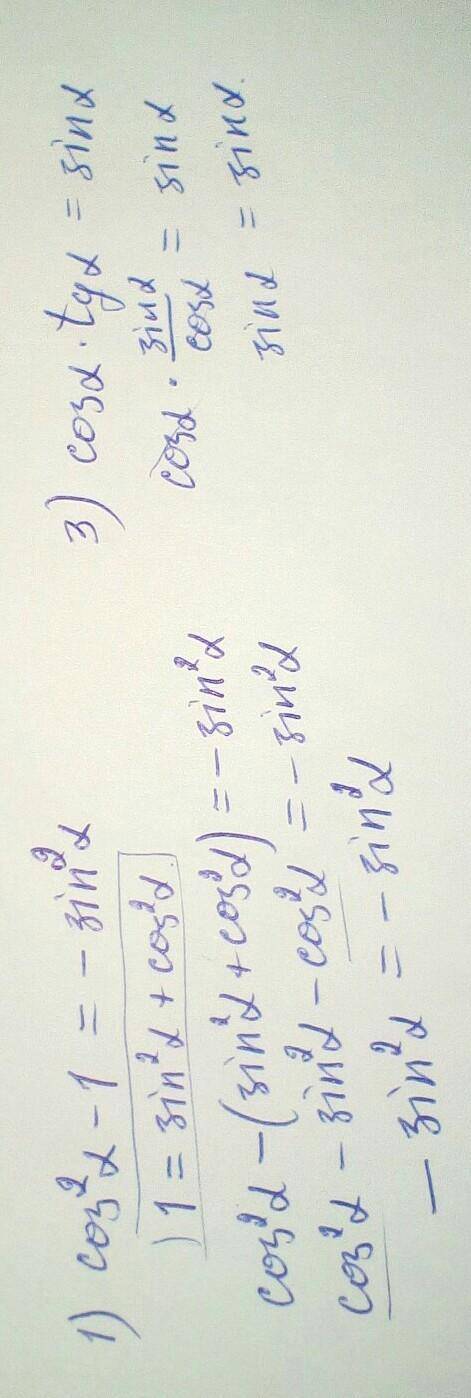 1) cos²α - 1 = - sin²α
) 1 = sin²α + cos²α.
cos²α - (sin²α + cos²α) = - sin²α
cos²α - sin²α - cos²α = - sin²α
- sin²α = - sin²α
3) cosα · tgα = sinα
cosα · sinα/cosα = sinα
sinα = sinα.